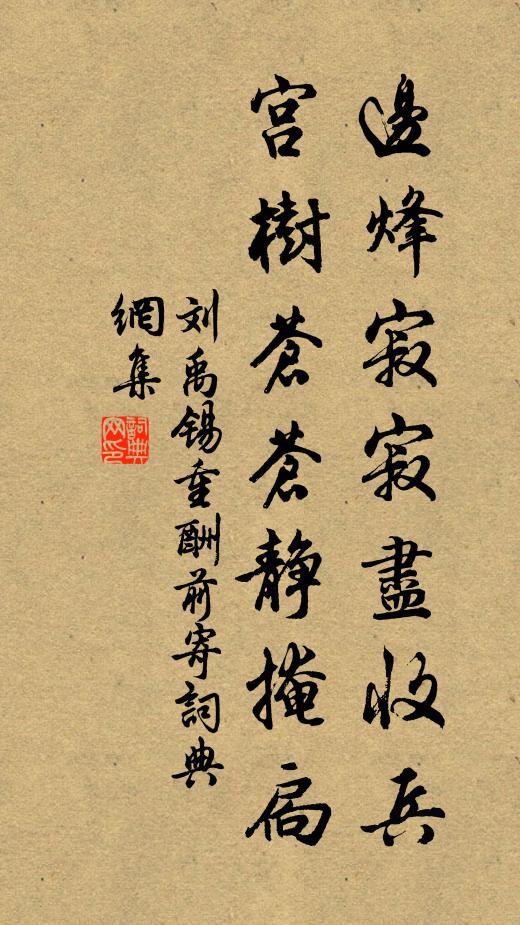 邊烽寂寂盡收兵
宮樹蒼蒼靜掩扃
刘禹锡重酬前寄詞典
網集
詞典
网印